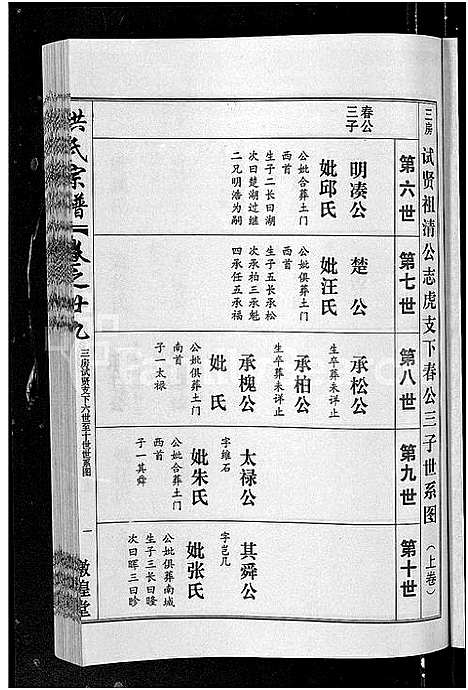 三房 试贤祖清公志虎支下春公三子世系图（上卷）
春公
三子
第六世
明凑公
妣邱氏
公妣合葬土门
西首
生子二长曰湖
次曰楚湖过继
二兄明浩为嗣
第七世
楚公
妣汪氏
公妣俱葬土门
西首
生子五长承松
次承柏三承魁
四承任五承福
第八世
承松公
生卒葬未详止
承柏公
生卒葬未详止
承槐公
妣 氏
公妣俱葬土门
南首
子一太禄
第九世
太禄公
字维石
妣朱氏
公妣合葬土门
西首
子一其舜
第十世
其舜公
字岂几
妣张氏
公妣俱葬南城
生子三长曰暲
次曰晖三曰昣
洪氏宗谱 卷之廿九
三房试贤支下六世至十世世系图
一
敦煌堂